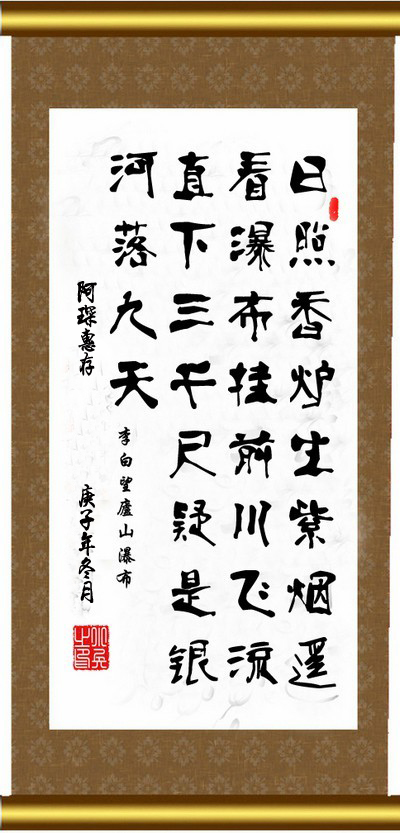 日照香炉生紫烟遥
看瀑布挂前川飞流
直下三千尺疑是银
河落九天
李白望廬山瀑布
阿琛惠存
庚子年冬月